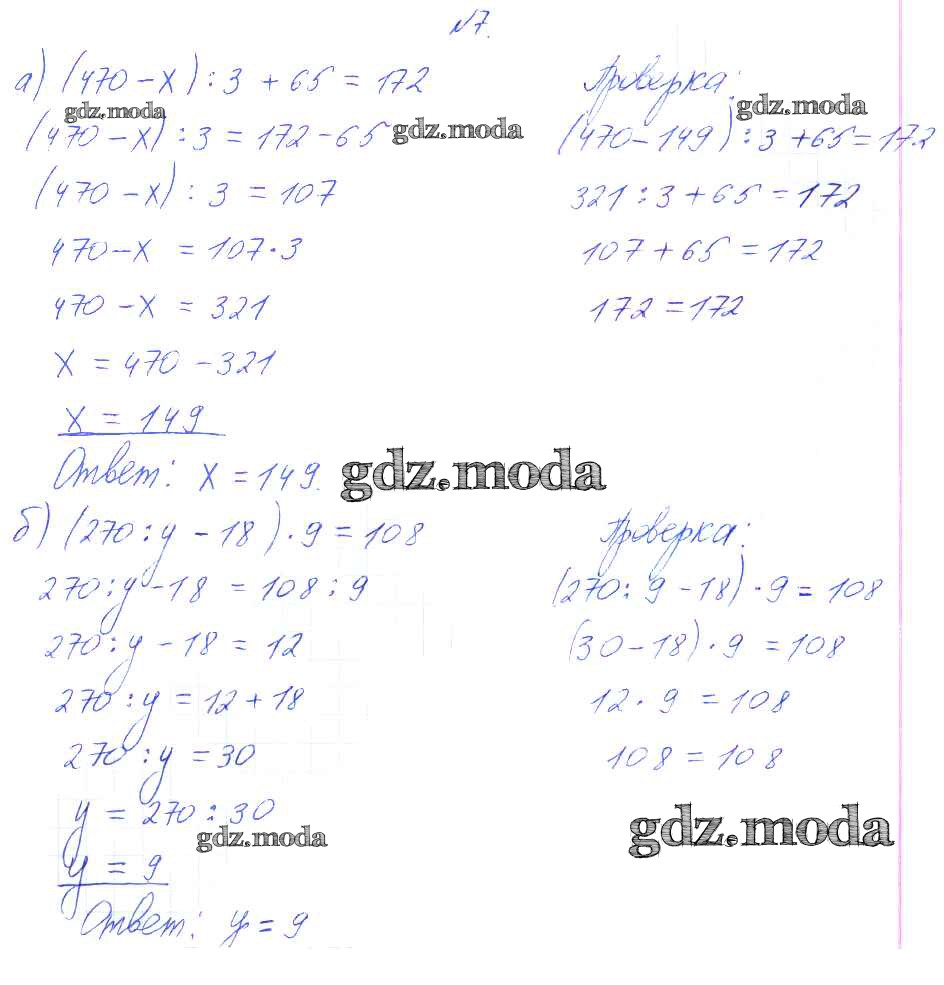 №7.
а) (470 - х) : 3 + 65 = 172
gdz.moda
(470 - х) : 3 = 172 - 65
gdz.moda
(470 - х) : 3 = 107
470 - х = 107 · 3
470 - х = 321
х = 470 - 321
х = 149
Ответ: х = 149.
gdz.moda
Проверка:
gdz.moda
(470 - 149) : 3 + 65 = 172
321 : 3 + 65 = 172
107 + 65 = 172
172 = 172
б) (270 : у - 18) · 9 = 108
270 : у - 18 = 108 : 9
270 : у - 18 = 12
270 : у = 12 + 18
270 : у = 30
у = 270 : 30
gdz.moda
у = 9
Ответ: у = 9
Проверка:
(270 : 9 - 18) · 9 = 108
(30 - 18) · 9 = 108
12 · 9 = 108
108 = 108
gdz.moda